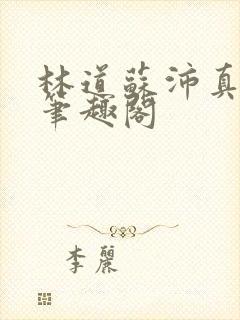 林道蘇沛真
筆趣閣
李麗